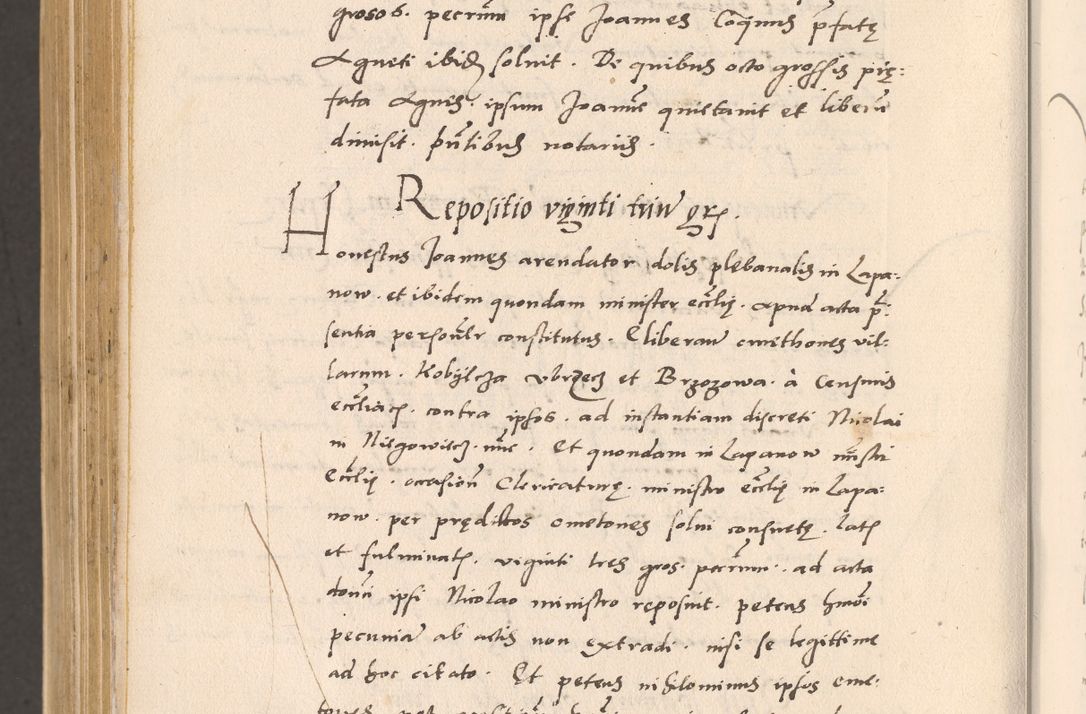 grosos. pecuñ ipse Joannes Coqnus p̃fatę
Agneti ibidȝ soluit. De quibus octo grossis prę:
fata Agnes. ipsum Joanñe quietauit et liberũ
dimisit. pñtibus notariis.
Repositio viginti triũ grȝ.
Honestus Joannes arendator dolis plebanalis in Lapa:
now. et ibidem quondam minister eccl̃ię. apud acta p̃:
sentia personãlr constitutus. Cliberaũ cmethones vil:
larum. Kobylcza vbrzecz et Brzozowa. à Censuris
eccl̃iacis. contra ipsos. ad instantiam discreti Nicolai
in Niegowicz. nũc. Et quondam in Lapanow ministri
Eccl̃ię. occasioñ Clericaturę. ministro eccl̃ię in Lapa:
now. per prędictos cmetones solui consuetę. latȝ
et fulminatȝ. viginti tres gros. pecuñ. ad acta
domĩ ipsi Nicolao ministro reposuit. petens hm̃oi
pecuniã ab actis non extradi. nisi se legittime
ad hoc citato. Et petens nihilominus ipsos cme: